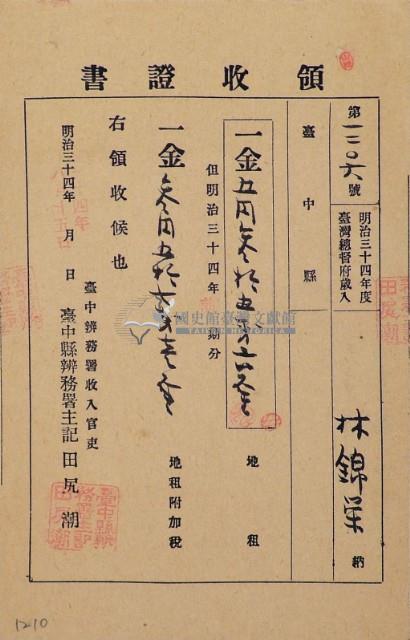 領收證書
第一二〇六號
明治三十四年度
臺灣總督府歲入
林錦榮 納
臺中縣
一金五円參拾五錢六厘 地租
但明治三十四年 期分
一金參円五拾 錢壹厘 地租附加稅
右領收候也
明治三十四年 月 日
臺中辨務署收入官吏
臺中縣辨務署主記 田尻潮
臺中縣辨
務署主記
田尻潮
國史館臺灣文獻館
TAIWAN HISTORICA
1210